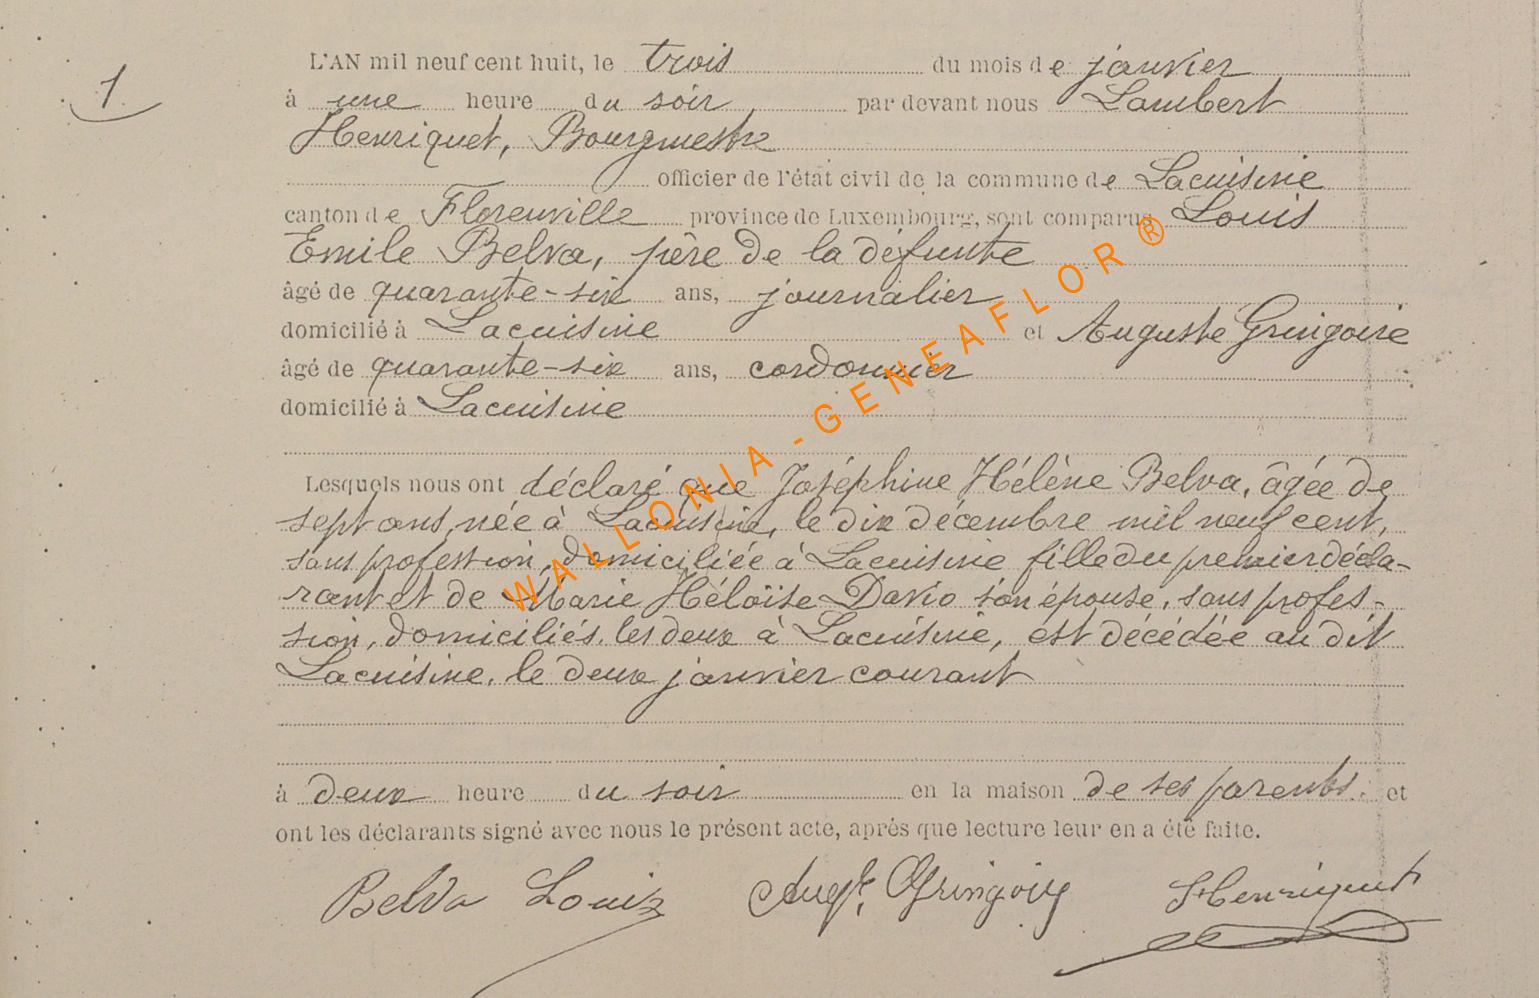 1
L'AN mil neuf cent huit, le trois du mois de janvier
à une heure du soir par devant nous Lambert
Henriquet, Bourgmestre
officier de l'état civil de la commune de Lacuisine
canton de Florenville province de Luxembourg, sont comparus Louis
Emile Belva, père de la défunte
âgé de quarante-six ans, journalier
domicilié à Lacuisine et Auguste Gringoire
âgé de quarante-six ans, cordonnier
domicilié à Lacuisine
Lesquels nous ont déclaré que Joséphine Hélène Belva, âgée de
sept ans, née à Lacuisine, le dix décembre mil neuf cent,
sans profession, domiciliée à Lacuisine fille du premier décla-
rant et de Marie Héloïse Davio son épouse, sans profes-
sion, domiciliés les deux à Lacuisine, est décédée au dit
Lacuisine, le deux janvier courant
à deux heure du soir en la maison de ses parents. et
ont les déclarants signé avec nous le présent acte, après que lecture leur en a été faite.
Belva Louis Augte. Gringoire Henriquet
WALLONIA-GENEAFLOR®